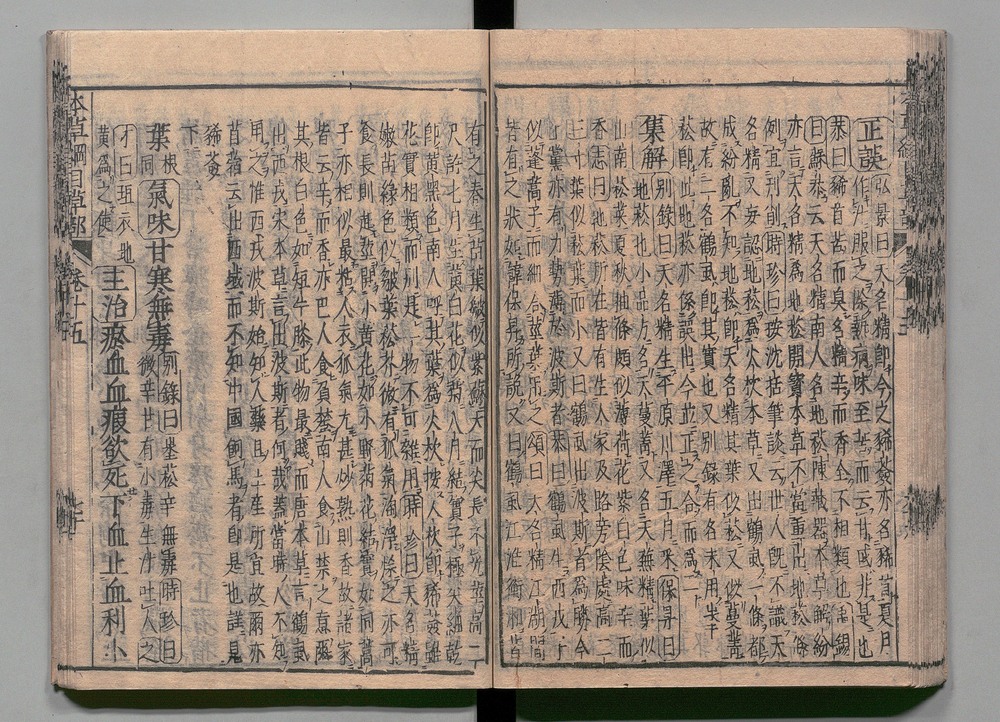 正誤 弘景曰天名精即今之豨薟亦名豨首夏月
作熱服之除熱病味至苦而云甘或非是也
恭曰豨首苦而臭名精辛而香全不相類也禹錫
曰蘇恭云天名精南人名地菘陳藏器本草解紛
亦言天名精為地菘開寶本草不當重出地菘條
例宜刊削時珍曰按沈括筆談云世人既不識天
名精又妄認地菘為火枕本草又出鶴虱一條都
成紛亂不知地菘即天名精其葉似菘又似蔓菁
故有二名鶴虱即其實也又別錄有名未用
菘即此地菘亦係誤出今並正之合而為一
集解 別錄曰天名精生平原川澤五月采保昇曰
山南菘葉夏秋抽條頗似薄荷花紫白色味辛而
香志曰地菘所在皆有生人家及路旁陰處高二
三寸葉似菘葉而小又曰鶴虱出波斯者為勝今
上黨亦有力勢薄於波斯者恭曰鶴虱生西戎
似蓬蒿子而細合莖葉用之頌曰天名精江湖間
皆有之狀如韓保昇所說又曰鶴虱江淮衡湘皆
有之春生苗葉皺似紫蘇大而尖長不光莖高二
尺許七月生黃白花似菊八月結實子極尖細乾
即黃黑色南人呼其葉為火枕按火枕即豨薟雖
花實相類而別是一物不可雜用時珍曰天名精
嫩苗綠色似皺葉菘芥微有狐氣淘淨煠之亦可
食長則起莖開小黃花如小野菊花結實如同蒿
子亦相似最粘人衣狐氣尤甚炒熟則香故諸家
皆云辛而香亦巴人食負蠜南人食山柰之意爾
其根白色如短牛膝此物最賤而唐本草言鶴虱
出西戎宋本草言出波斯者何哉蓋當時人不知
用之惟西戎波斯始知入藥且土產所宜故爾亦
苜蓿云出西域而不知中國飼馬者即是也詳見
豨薟下
葉根同 氣味甘寒無毒 別錄曰墨菘辛無毒時珍曰
微辛甘有小毒生汁吐人之
才曰垣衣地
黃為之使 主治瘀血血瘕欲死下血止血利小
本草綱目草部 卷十五